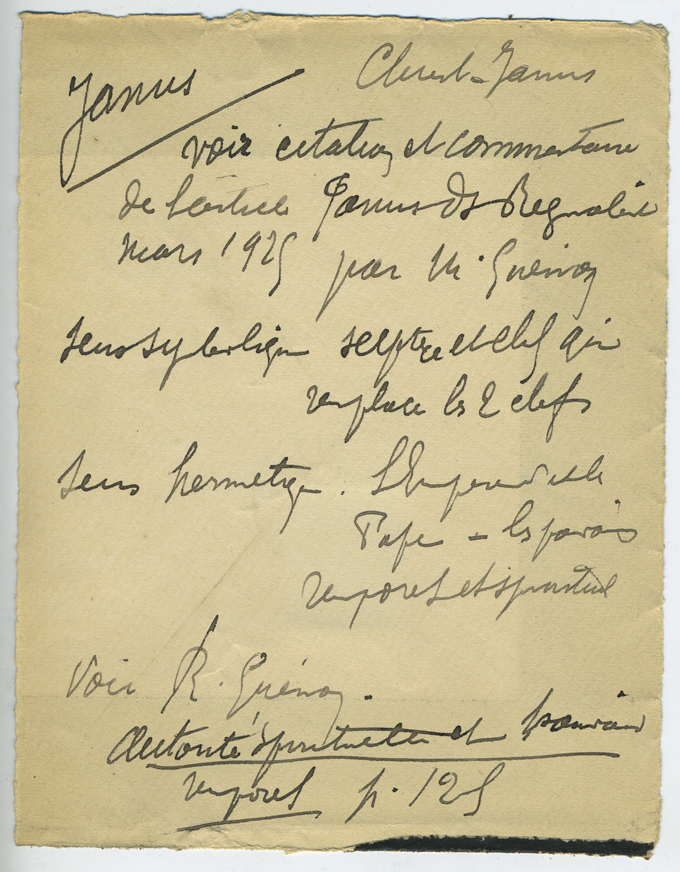 Janus
Christ-Janus
voir citation et commentaire
de l'article Janus ds Regnabit
mars 1925 par M. Guénon
sens symbolique sceptre et clef qui
remplace les 2 clefs
sens hermetique. L'Empereur et le
Pape = les pouvoirs
temporel et spirituel
Voir R. Guénon.
Autorité spirituelle et pouvoir
temporel p. 125